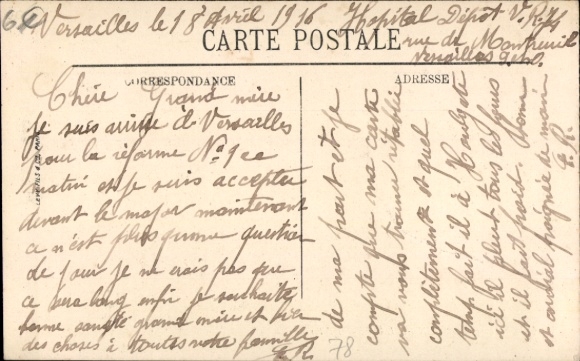 Versailles le 18 Avril 1916 Hopital Dépôt V.R.
rue de Montreuil
Versailles
CARTE POSTALE
CORRESPONDANCE
ADRESSE
Chère Grand mère
je suis arrivé à Versailles
pour la réforme No 1 ce
matin et je suis accepter
devant le major maintenant
ce n'est plus qu'une question
de jour je ne crois pas que
ce sera long enfin je souhaite
bonne santé grand mère et bien
des choses à toutes votre famille
E.R.
de ma part et je
compte que ma carte
va vous trouver rétablie
complètement et quel
temp fait il à
ici il pleut tous les jours
et il fait froid. bonne
et cordial poignée de main
E.R.
LEVY FILS & Cie PARIS
78